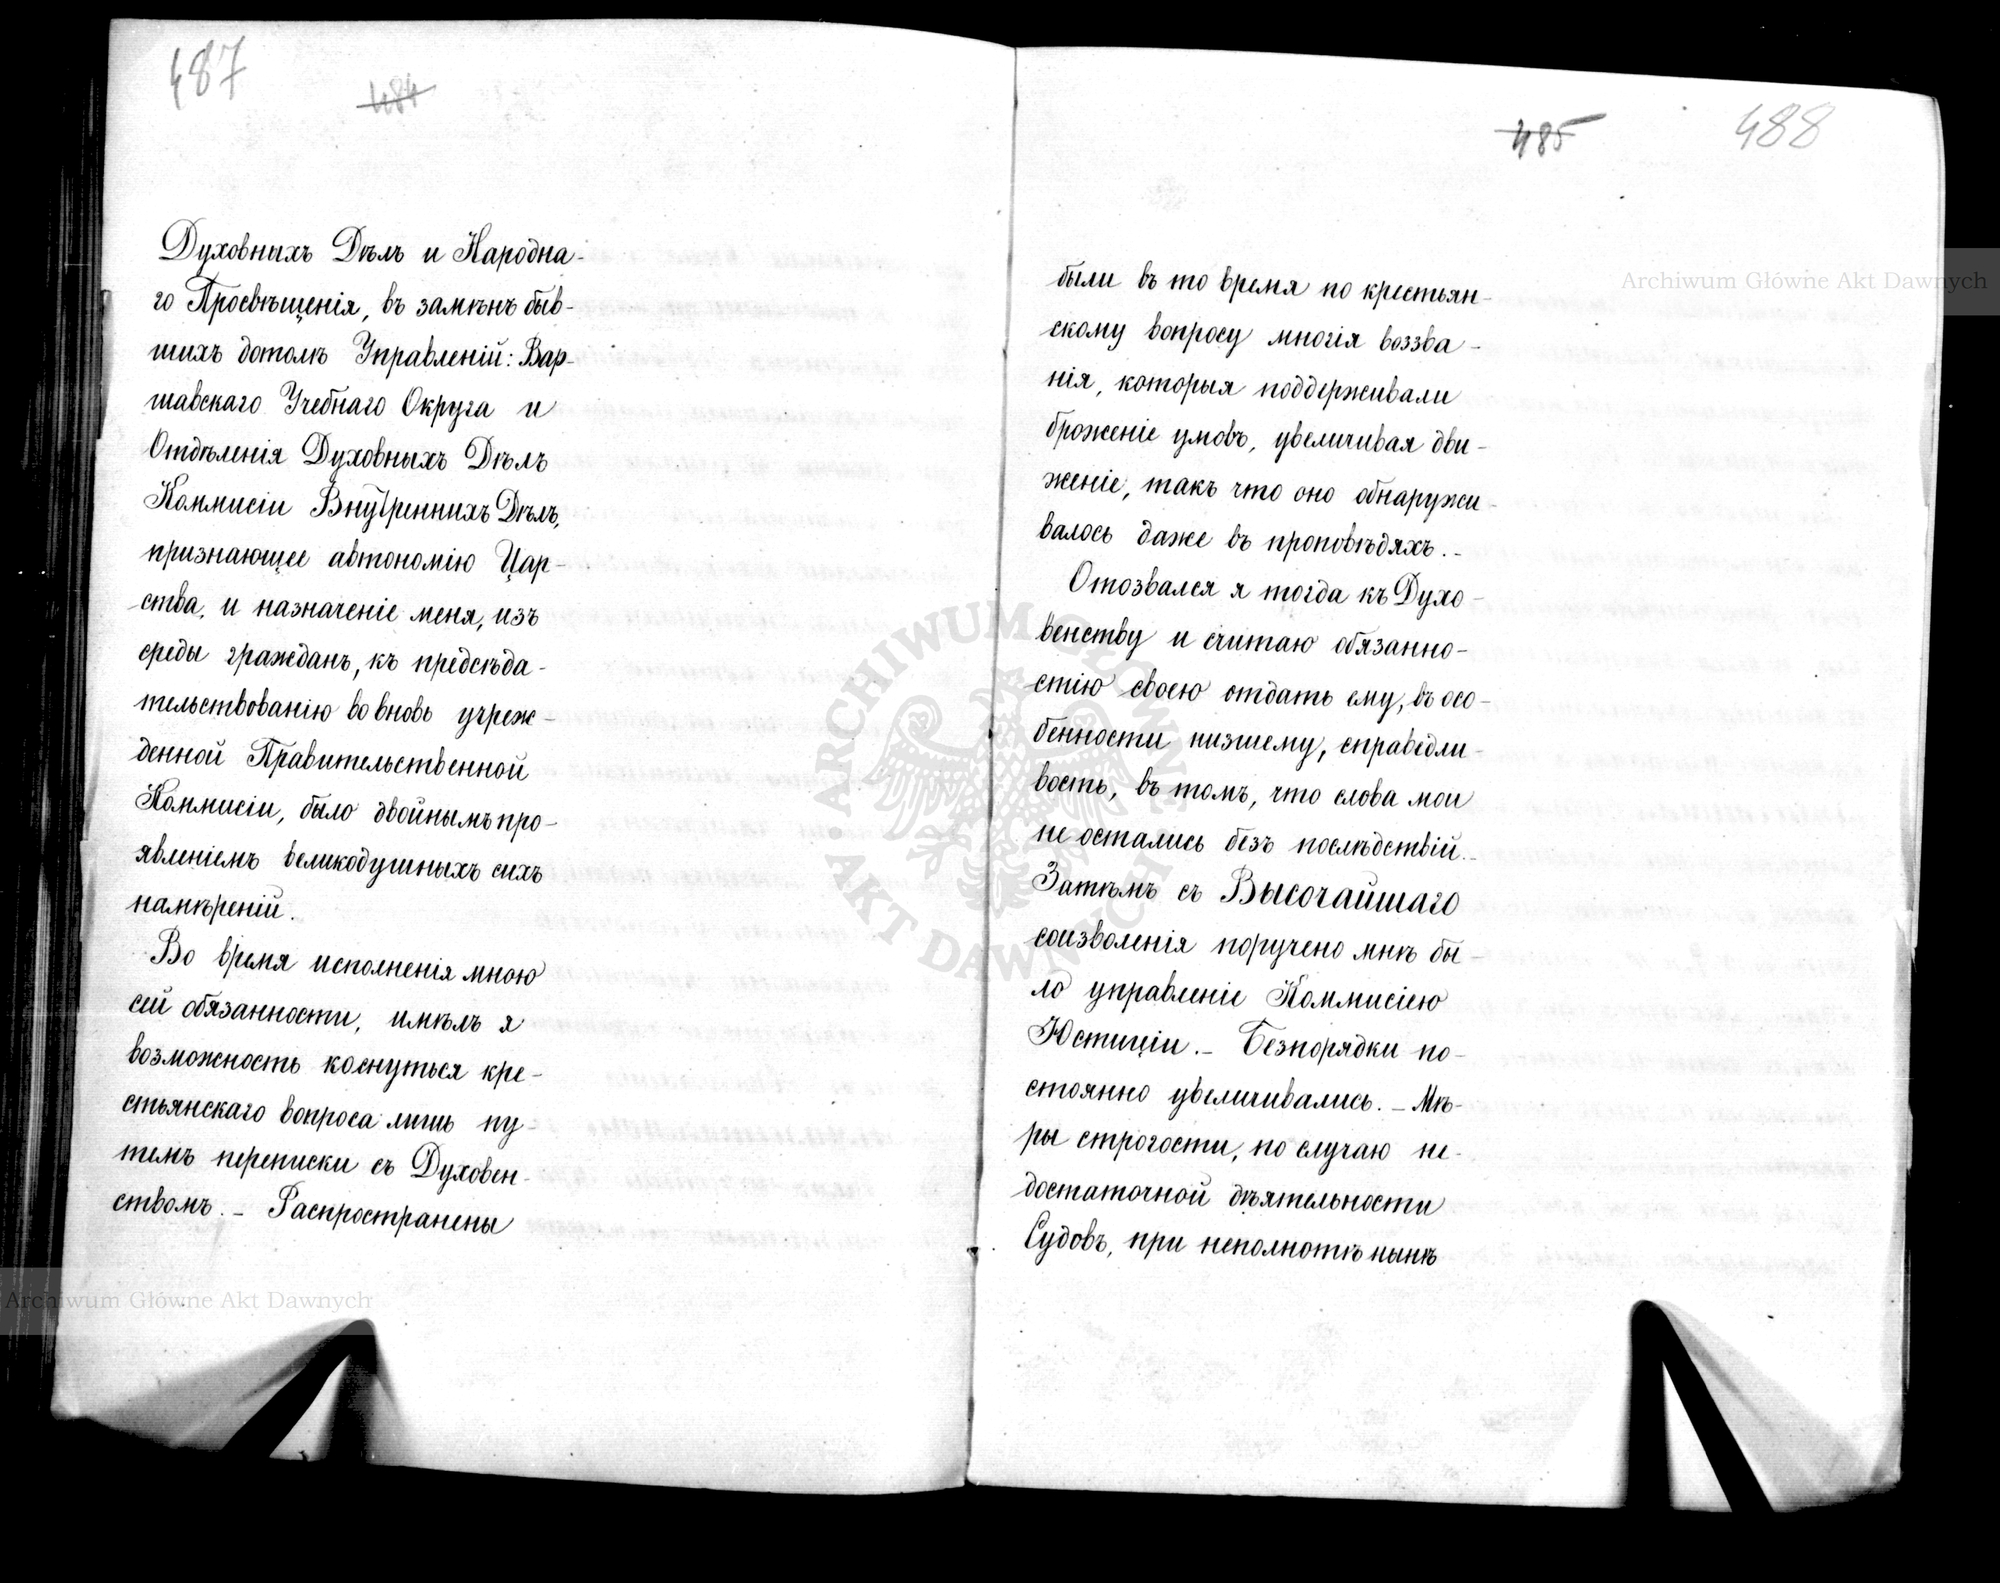 487
484
Духовныхъ Дѣлъ и Народна-
го Просвѣщенія, въ замѣнъ быв-
шихъ дотолѣ Управленій: Вар-
шавскаго Учебнаго Округа и
Отдѣленія Духовныхъ Дѣлъ
Коммисіи Внутреннихъ Дѣлъ,
признающее автономію Цар-
ства, и назначеніе меня, изъ
среды гражданъ, къ предсѣда-
тельствованію во вновь учреж-
денной Правительственной
Коммисіи, было двойнымъ про-
явленіемъ великодушныхъ сихъ
намѣреній.
Во время исполненія мною
сей обязанности, имѣлъ я
возможность коснуться кре-
стьянскаго вопроса лишь пу-
темъ переписки съ Духовен-
ствомъ. – Распространены
485
488
были въ то время по крестьян-
скому вопросу многія воззва-
нія, которыя поддерживали
броженіе умовъ, увеличивая дви-
женіе, такъ что оно обнаружи-
валось даже въ проповѣдяхъ. –
Отозвался я тогда къ Духо-
венству и считаю обязанно-
стію своею отдать ему, въ осо-
бенности низшему, справедли-
вость, въ томъ, что слова мои
не остались безъ послѣдствій. –
Затѣмъ съ Высочайшаго
соизволенія поручено мнѣ бы-
ло управленіе Коммисіею
Юстиціи. – Безпорядки по-
стоянно увеличивались. – Мѣ-
ры строгости, по случаю не-
достаточной дѣятельности
Судовъ, при неполнотѣ нынѣ
Archiwum Główne Akt Dawnych
Archiwum Główne Akt Dawnych
ARCHIWUM GŁÓWNE AKT DAWNYCH